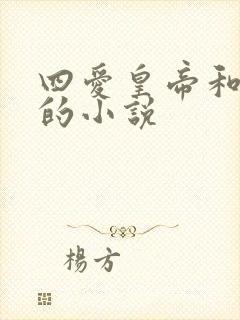 四爱皇帝和
的小说
楊方